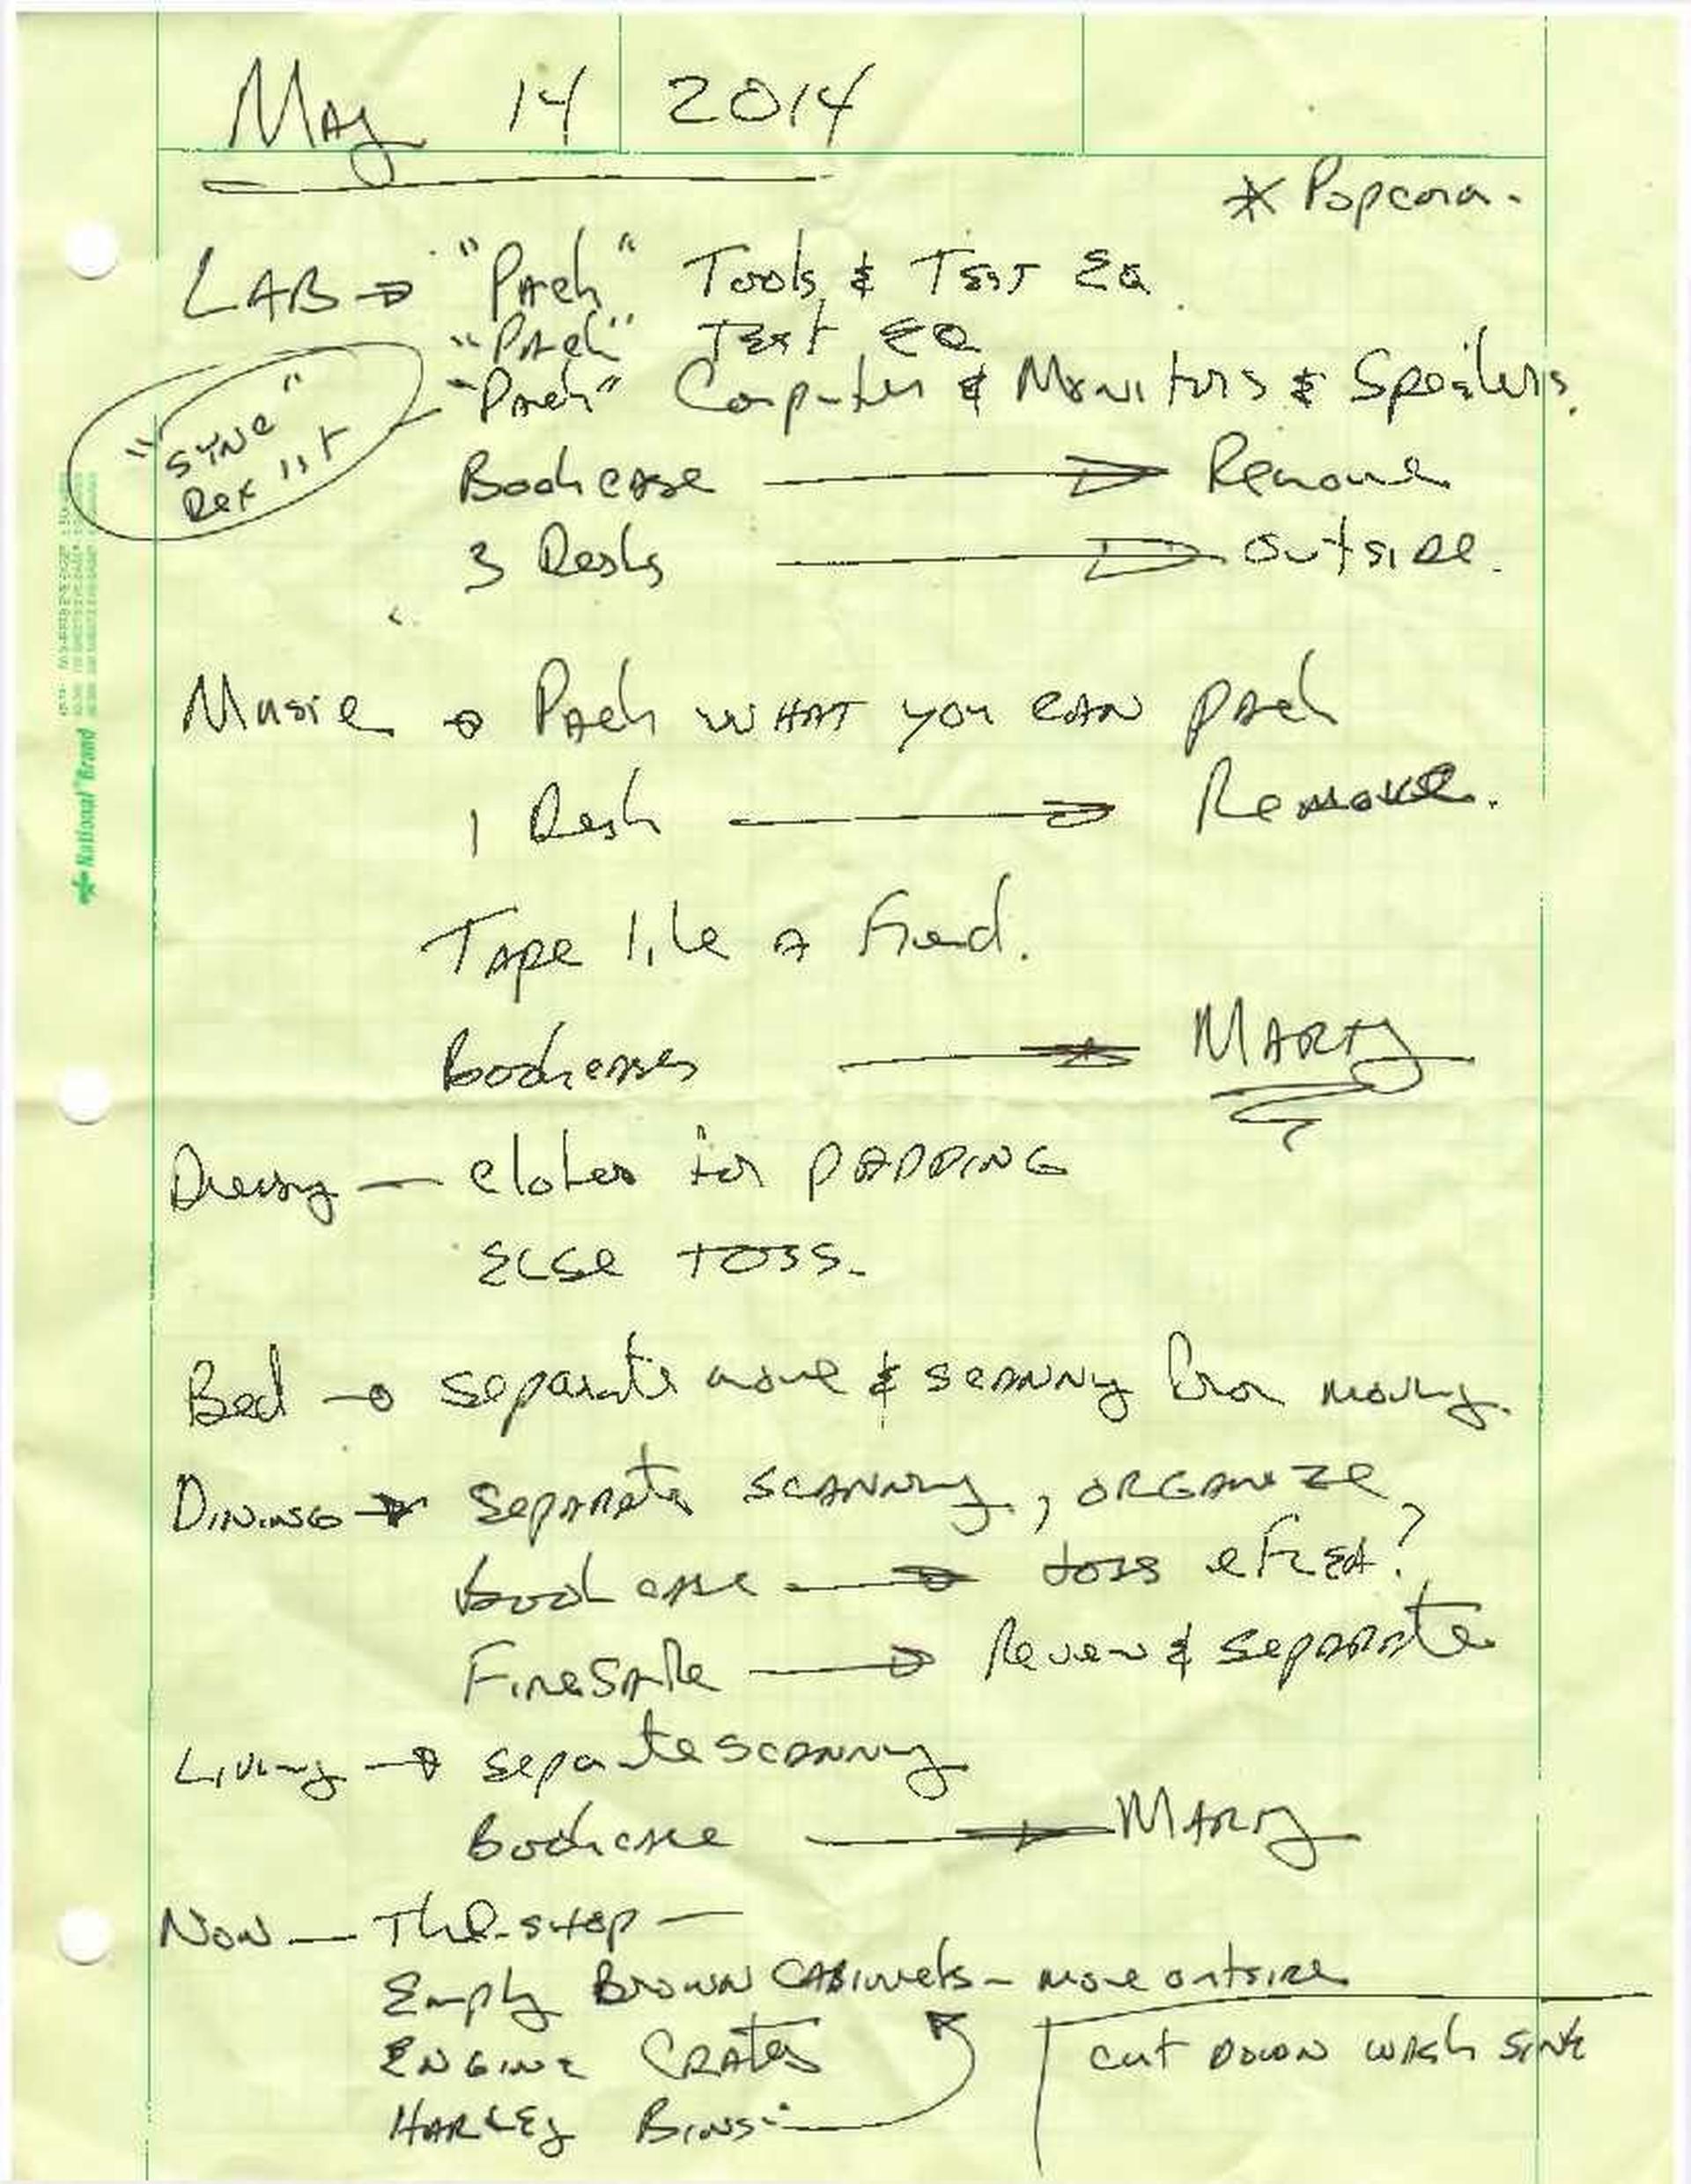 May 14 2014
* Popcorn.
LAB → "Pack" Tools & Test EQ
"Pack" Test EQ
"Pack" Computer & Monitors & Speakers.
"SYNC"
Bookcase → Remove
3 Desks → outside.
Music → Pack WHAT YOU CAN pack
1 Desk → Remove.
Tape like a fiend.
Bookcases → MARTY
Dressing — clothes for PADDING
ELSE TOSS.
Bed → separate move & scanning from moving.
DINING → Separate scanning, ORGANIZE
bookcase → toss
FireSafe → Review & separate
Living → separate scanning
Bookcase → MARTY
Now — The shop —
Empty Brown CABinets - move outside
ENGINE CRATES
cut DOWN wash sink
HARLEY Bins
National® Brand